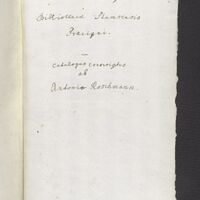 Bibliotheca Stamsensis
Praecipui.
—
Catalogus conscriptus
ab
Antonio Roschmann.